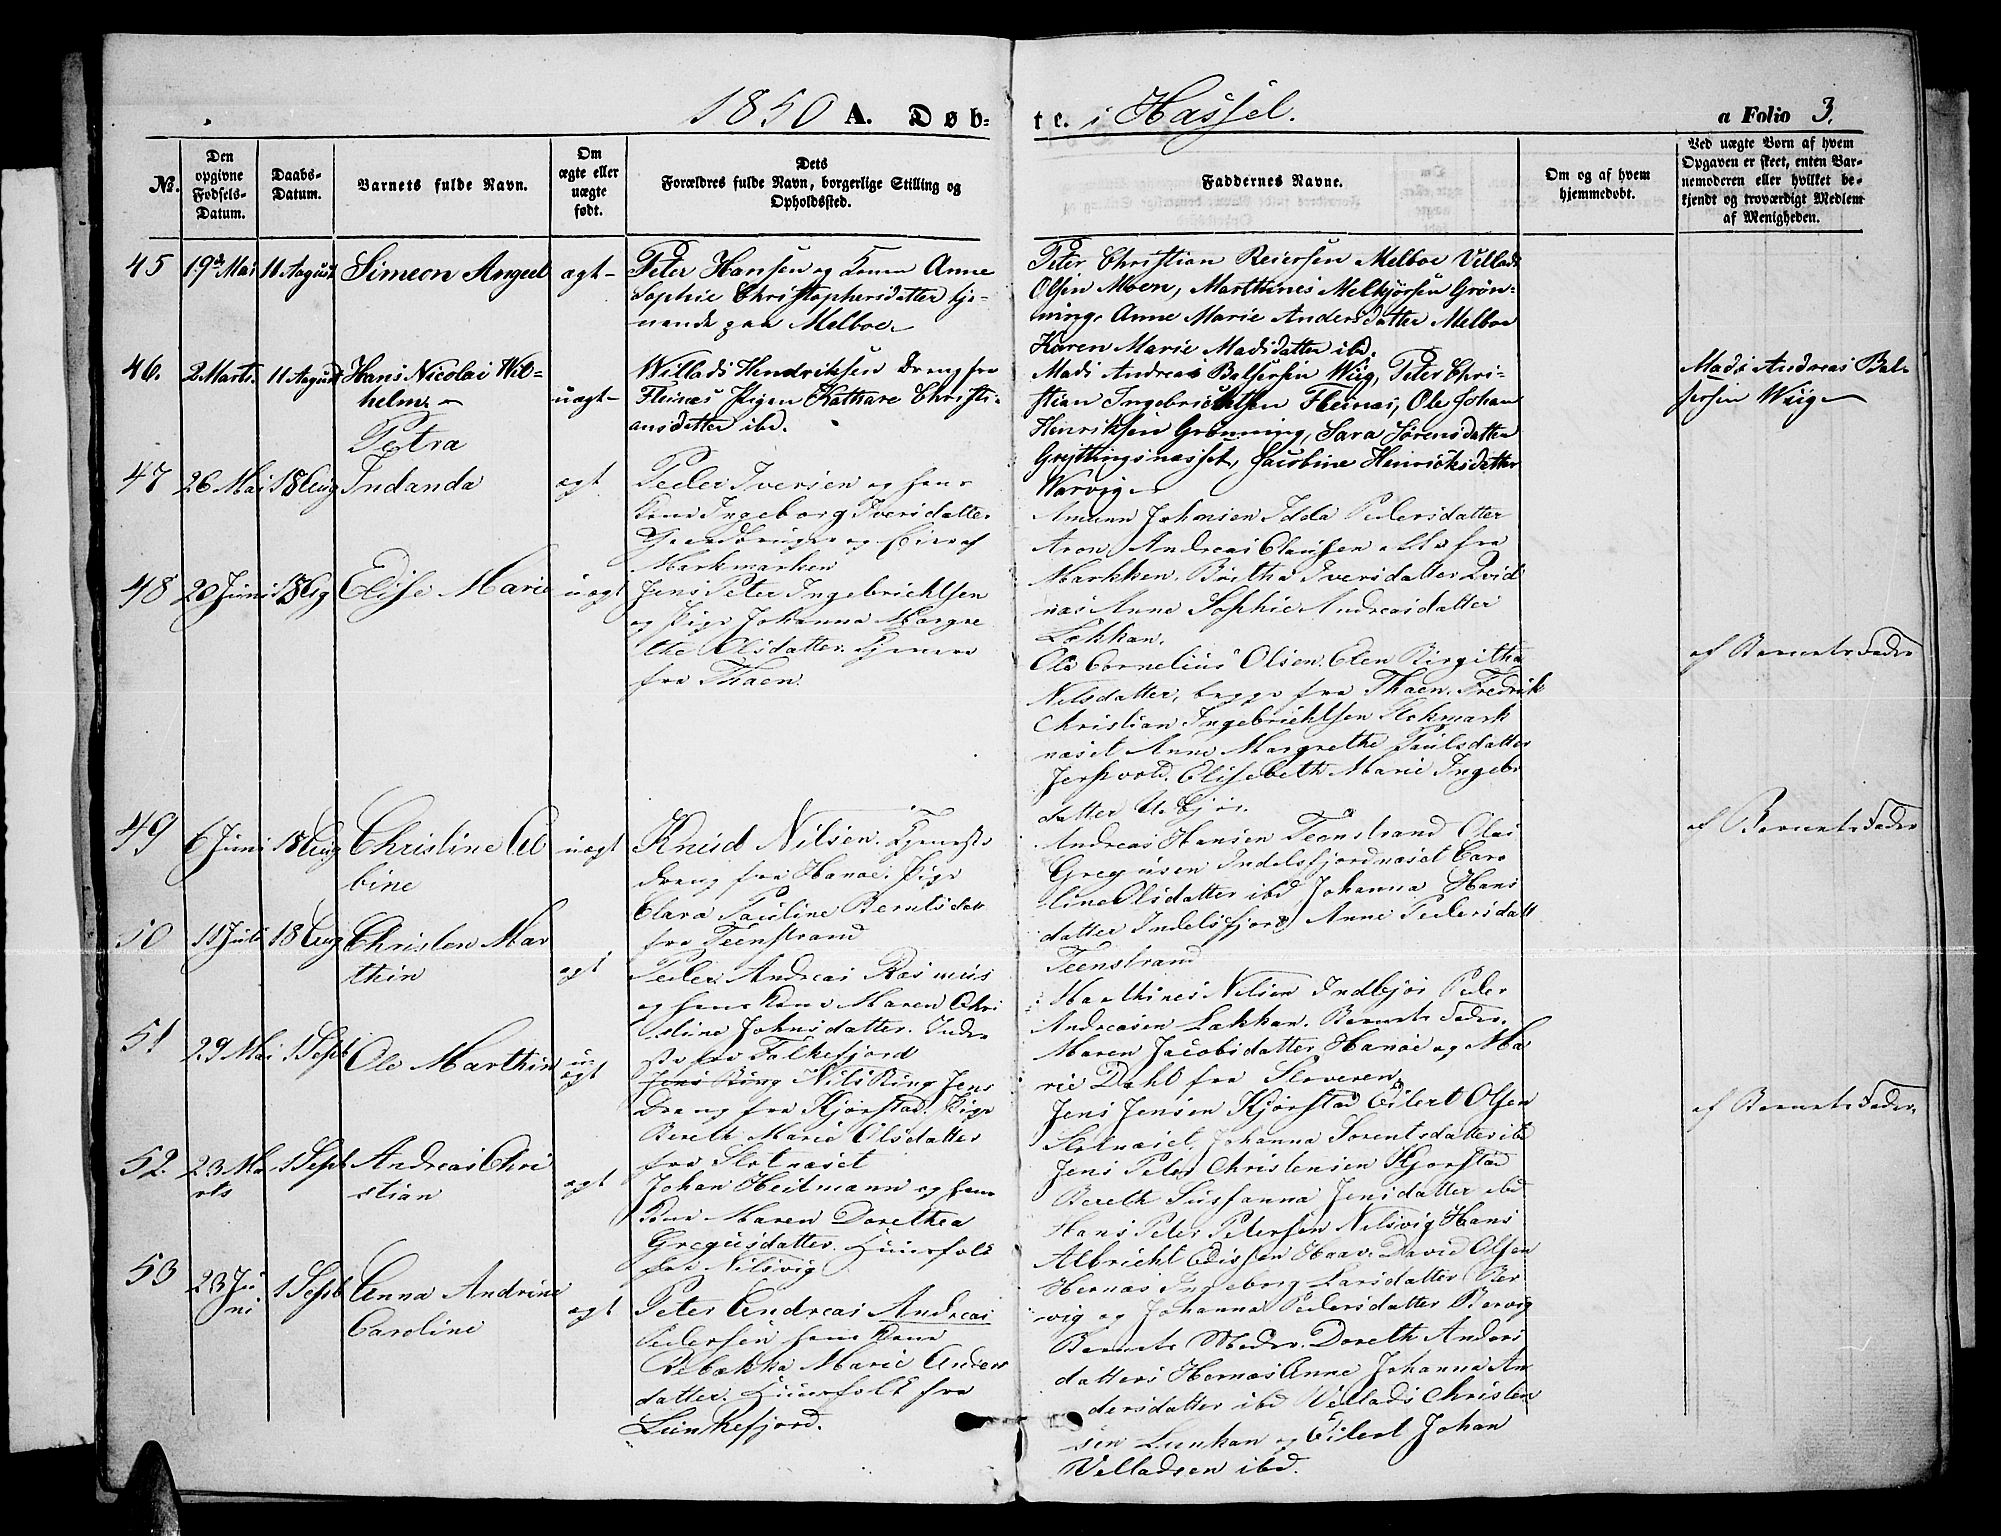 1850 A. Døb-
te. i Hassel.
a Folio 3.
No.
Den opgivne Fødsels-Datum.
Daabs-Datum.
Barnets fulde Navn.
Om ægte eller uægte født.
Dets
Forældres fulde Navn, borgerlige Stilling og
Opholdssted.
Faddernes Navne.
Om og af hvem
hjemmedøbt.
Ved uægte Børn af hvem
Opgaven er skeet, enten Bar-
nemoderen eller hvilket be-
kjendt og troværdigt Medlem
af Menigheden.
45 19de Mai 11 August Simeon Angeel ægt-
Peter Hansen og Konen Anne
Sophie Christophersdatter tje-
nende paa Melboe
Peter Christian Reiersen Melboe Vellads
Olsen Moen, Marthines Melkjørsen Grøn-
ning, Anne Marie Andersdatter Melboe
Karen Marie Madsdatter ibd.
46. 2 Marts. 11 August Hans Nicolai Wil-
helm
uægt-
Willads Hendriksen Dreng fra
Fleinæs Pigen Kathare Christi-
ansdatter ibd.
Mads Andreas Balsersen Wiig, Peter Chri-
stian Ingebrichtsen Fleinæs, Ole Johan
Henriksen Grønning, Sara Sørensdatter
Grejttingsnæsset, Jacobine Henricksdatter
Warvig
Mads Andreas Bal-
sersen Wiig
47 26 Mai 18 Aug
Petra
Indanda
ægt
Peder Iversen og hans
Kone Ingeborg Iversdatter
Gaardbruger og Eier af
Markmarken
Amunn Johnsen Idda Pedersdatter
Aron Andreas Clausen alle fra
Markken. Britha Iversdatter Qvid
næs Anne Sophie Andreasdatter
Løkkan.
48 20 Juni 18 Aug Elise Marie uægt
Jens Peter Ingebrichtsen
og Pige Johanna Margre
the Olsdatter. tjenere
fra Thaen
Ole Cornelius Olsen. Elen Birgitha
Nilsdatter, begge fra Thaen. Fredrik
Christian Ingebrichtsen Stokmark
næset Anne Margrethe Paulsdatter
Jerstvold. Elisebeth Marie Ingebr
datter
af Barnets Fader
49 6 Juni 18 Aug Christine Al
bine
uægt
Knud Nilsen. Tjeneste
dreng fra Hanøe. Pige
Clara Pauline Berntsdatt
fra Teenstrand
Andreas Hansen Teenstrand Olai
Gregusen Indelsfjordnæset Caro
line Olsdatter ibd Johanna Hans
datter Indelsfjord Anne Pedersdatt
Teenstrand
af Barnets Fader
50 11 Juli 18 Aug Christen Mar
thin
ægt
Peder Andreas Rasmus
og hans Kone Maren Chri
stine Johnsdatter. Inder
ste fra Falkefjord
Marthines Nilsen Indbjor Peder
Andreasen Løkkan. Barnets Fader.
Maren Jacobsdatter Hanøe og Ma
rie Dahl fra Sloveren
51 29 Mai 1 Sept Ole Marthin
uægt
Jens Ring Nils Ring Jens
Dreng fra Kjørstad. Pige
Bereth Marie Olsdatter
fra Slotnæset
Jens Jensen Kjørstad Eilert Olsen
Slotnæset, Johanna Sorentsdatter ibd
Jens Peter Christensen Kjorstad
Bereth Susanna Jensdatter ibd
af Barnets Fader.
52. 23 Ma
rts
1 Sept Andreas Chri
stian
ægt
Johan Heitmann og hans
Kone Maren Dorethea
Gregusdatter. Huusfolk
fra Nilsvig
Hans Peter Petersen Nilsvig Hans
Albricht Edissen Haav. David Olsen
Hernæs Ingeborg Larsdatter Ber
vig og Johanna Pedersdatter Bervig
53 23 Ju
ni
1 Sept Anna Andrine
Caroline
ægt
Peter Andreas Andreas
Pedersen hans Kone
Rebækka Marie Anders
datter. Huusfolk fra
Lunkefjord.
Barnets Moder. Doreth Anders
datters Hernæs Anne Johanna An
dersdatter ibd Vellads Christen
sen Lunkan og Eilert Johan
Velladsen ibd.